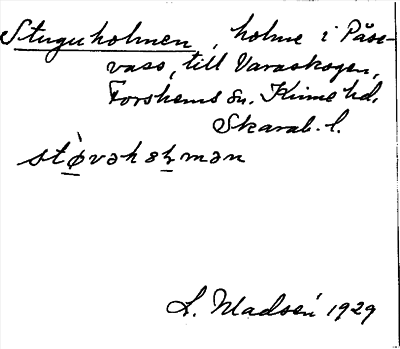 Stuguholmen, holme i Påse-
vass, till Varaskogen,
Forshems sn. Kinne hd.
Skarab. l.
L. Madsén 1929